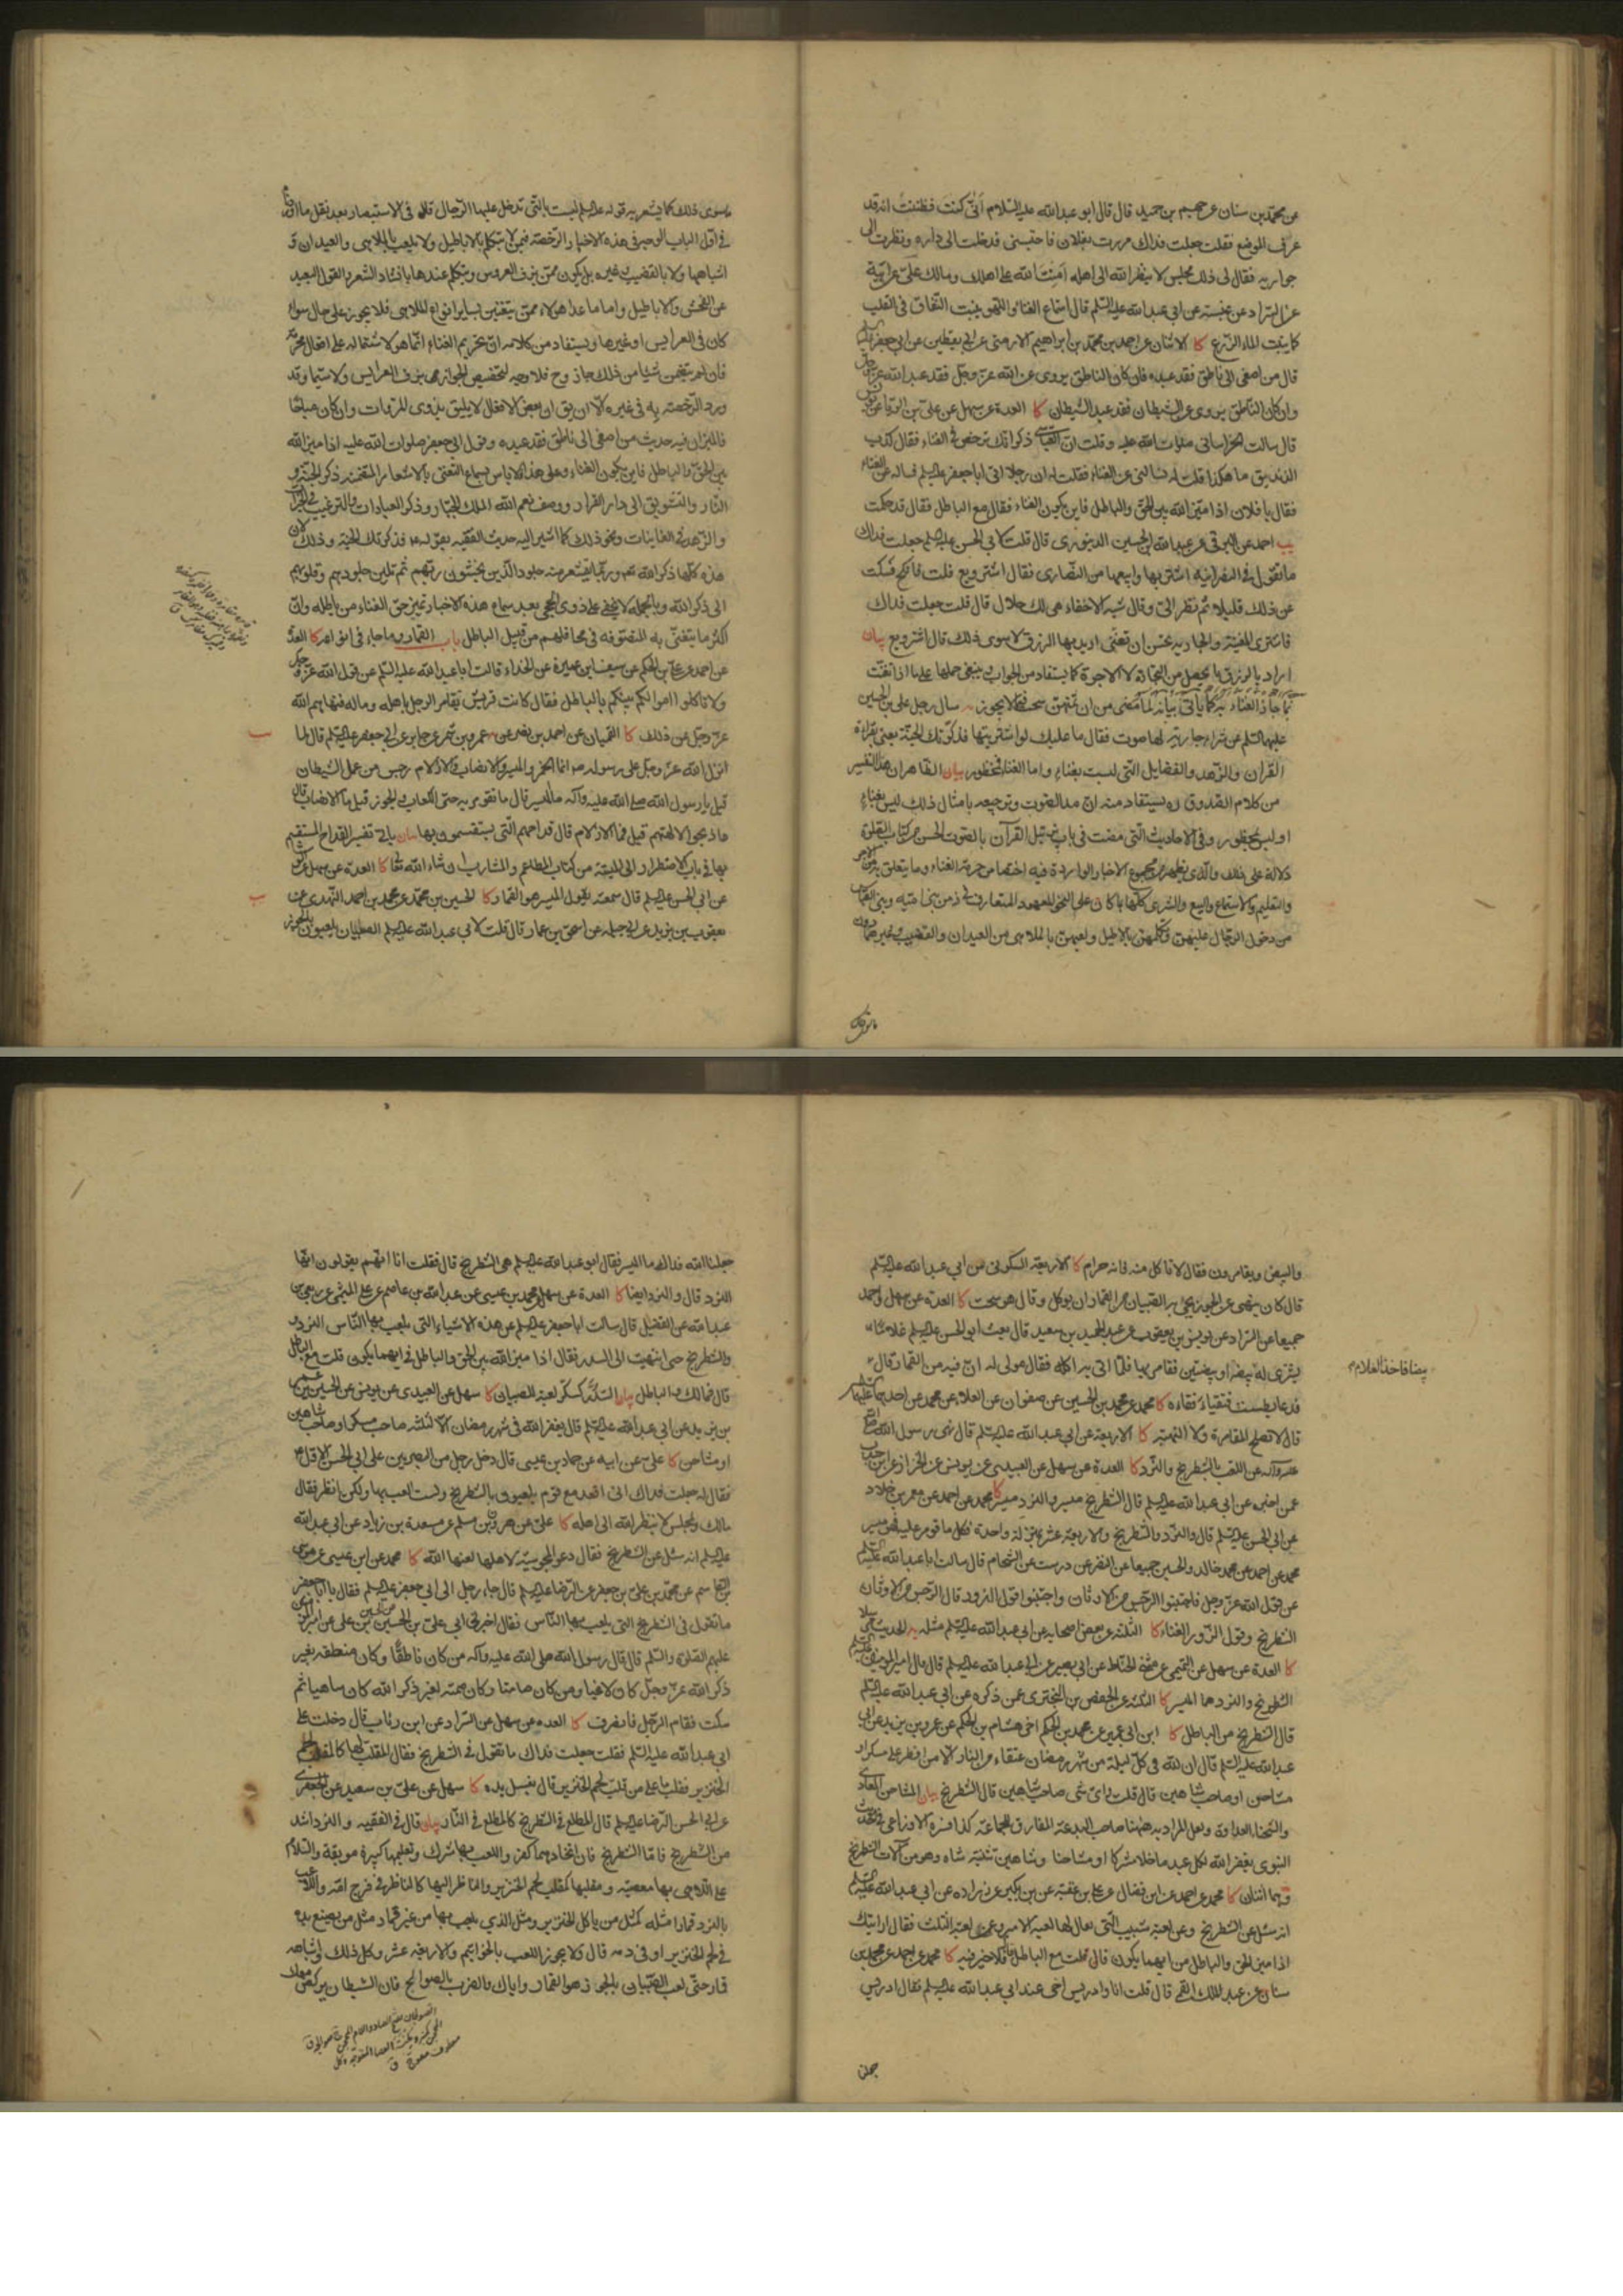 عن محمد بن سنان عن حميم بن حميد قال قال ابو عبد الله عليه السلام أنّى كنت فظننت انه قد
عرف الموضع فقلت جعلت فداك مررت بفلان فاحتبسنى فدخلت الى داره ونظرت الى
جواريه فقال لى ذلك مجلس لا ينظر الله الى اهله امنت الله على اهلك ومالك
عن ابى عبد الله عليه السلم قال استماع الغناء واللهو ينبت النفاق فى القلب
كما ينبت الماء الزرع كا الاثنان عن احمد بن محمد بن ابراهيم الارمنى عن ابى يقطين عن ابى جعفر
قال من اصغى الى ناطق فقد عبده فان كان الناطق يروى عن الله عز وجل فقد عبد الله عز وجل
وان كان الناطق يروى عن الشيطان فقد عبد الشيطان كا العدة عن سهل عن على بن الريان عن يونس
قال سالت الخراسانى صلوات الله عليه وقلت ان العباسى ذكر انك ترخص فى الغناء فقال كذب
الزنديق ما هكذا قلت له سالنى عن الغناء فقلت له ان رجلا اتى ابا جعفر عليه السلم فساله عن الغناء
فقال يا فلان اذا ميز الله بين الحق والباطل فاين يكون الغناء فقال مع الباطل فقال قد حكمت
يب احمد عن البرقى عن عبد الله بن الحسين الدينورى قال قلت لابى الحسن عليه السلم جعلت فداك
ما تقول فى النصرانية اشتريها وابيعها من النصارى فقال اشتر وبع قلت فانكح فسكت
عن ذلك قليلا ثم نظر الى وقال شبه الاخفاء هى لك حلال قال قلت جعلت فداك
فاشترى المغنية والجارية تحسن ان تغنى اريد بها الرزق لا سوى ذلك قال اشتر وبع بيان
اراد بالرزق ما يحصل من التجارة لا الاجرة كما يستفاد من الجواب ينبغى حملها على ما اذا تغنت
سال رجل على بن الحسين
عليهما السلم عن شراء جارية لها صوت فقال ما عليك لو اشتريتها فذكرتك الجنة يعنى بقراءة
القرآن والزهد والفضايل التى ليست بغناء واما الغناء فمحظور بيان الظاهر ان هذا التفسير
من كلام الصدوق ره يستفاد منه ان مد الصوت وترجيعه بامثال ذلك ليس بغناء
او ليس بمحظور وفى الاحاديث التى مضت فى باب ترتيل القرآن بالصوت الحسن من كتاب الصلوة
دلالة على ذلك والذى يظهر من مجموع الاخبار الواردة فيه اختصاص حرمة الغناء وما يتعلق به من الاجر
والتعليم والاستماع والبيع والشرى كلها بما كان على النحو المعهود المتعارف فى زمن بنى امية وبنى العباس
من دخول الرجال عليهن وتكلمهن بالاباطيل ولعبهن بالملاهى من العيدان والقضيب وغيرهما دون
ما سوى ذلك
ما سوى ذلك كما يشعر به قوله عليه السلم ليست بالتى تدخل عليها الرجال قال فى الاستبصار بعد نقل ما اوردناه
فى اول الباب الوجه فى هذه الاخبار الرخصة فيمن لا تتكلم بالاباطيل ولا تلعب بالملاهى والعيدان و
اشباهها ولا بالقضيب وغيره بل يكون ممن يزف العروس ويتكلم عندها بانشاد الشعر والقول البعيد
عن الفحش والاباطيل واما ما عدا هؤلاء ممن يتغنين بساير انواع الملاهى فلا يجوز على حال سواء
كان فى العرايس او غيرها ويستفاد من كلامه ان تحريم الغناء انما هو لاشتماله على افعال محرمة
فان لم يتضمن شيئا من ذلك جاز وح فلا وجه لتخصيص الجواز بمن يزف العرايس ولا سيما وقد
ورد الرخصة به فى غيره الا ان يق ان بعض الافعال لا يليق بذوى المروات وان كان مباحا
فالميزان فيه حديث من اصغى الى ناطق فقد عبده وقول ابى جعفر صلوات الله عليه اذا ميز الله
بين الحق والباطل فاين يكون الغناء وعلى هذا فلا باس بسماع التغنى بالاشعار المتضمنة ذكر الجنة و
النار والتشويق الى دار القرار ووصف نعم الله الملك الجبار وذكر العبادات والترغيب فى الخيرات
والزهد فى الفانيات ونحو ذلك كما اشير اليه فى حديث الفقيه بقوله ع فذكرتك الجنة وذلك لان
هذه كلها ذكر الله تعم وربما تقشعر منه جلود الذين يخشون ربهم ثم تلين جلودهم وقلوبهم
الى ذكر الله وبالجملة لا يخفى على ذوى الحجى بعد سماع هذه الاخبار تمييز حق الغناء من باطله وان
اكثر ما يتغنى به المتصوفة فى محافلهم من قبيل الباطل باب القمار وما جاء فى انواعه كا العدة
عن احمد عن على بن الحكم عن سيف بن عميرة عن الحذاء قال سالت ابا عبد الله عليه السلم عن قول الله عز وجل
ولا تاكلوا اموالكم بينكم بالباطل فقال كانت قريش تقامر الرجل باهله وماله فنهاهم الله
عز وجل عن ذلك كا القميان عن احمد بن النضر عن عمرو بن شمر عن جابر عن ابى جعفر عليه السلم قال لما
انزل الله عز وجل على رسوله ص انما الخمر والميسر والانصاب والازلام رجس من عمل الشيطان
قيل يا رسول الله صلى الله عليه وآله ما الميسر قال ما تقومر به حتى الكعاب والجوز قيل فما الانصاب قال
ما ذبحوا لآلهتهم قيل فما الازلام قال قداحهم التى يستقسمون بها بيان ياتى تفسير القداح المستقسم
بها فى باب الاضطرار الى الميتة من كتاب المطاعم والمشارب ان شاء الله تعا كا العدة عن سهل عن
عن ابى الحسن عليه السلم قال سمعته يقول الميسر هو القمار كا الحسين بن محمد عن محمد بن احمد النهدى عن
يعقوب بن يزيد عن ابى جميلة عن اسحق بن عمار قال قلت لابى عبد الله عليه السلم الصبيان يلعبون بالجوز
والبيض ويقامرون فقال لا تاكل منه فانه حرام كا الاربعة السكونى عن ابى عبد الله عليه السلم
قال كان ينهى عن الجوز يجئ به الصبيان من القمار ان يوكل وقال هو سحت كا العدة عن سهل واحمد
جميعا عن السراد عن يونس بن يعقوب عن عبد الحميد بن سعيد قال بعث ابو الحسن عليه السلم غلاما
يشترى له بيضا او بيضتين فقامر بها فلما اتى به اكله فقال مولى له ان فيه من القمار قال
بيضا فاخذ الغلام
فدعا بطست فتقيا فقاءه كا محمد عن محمد بن الحسين عن صفوان عن العلاء عن محمد عن احدهما عليهما السلم
قال لا تصلح المقامرة ولا النهبة كا الاربعة عن ابى عبد الله عليه السلم قال نهى رسول الله صلى الله
عليه وآله عن اللعب بالشطرنج والنرد كا العدة عن سهل عن العبيدى عن يونس عن الخزاز عن ابن جندب
عمن اخبره عن ابى عبد الله عليه السلم قال الشطرنج ميسر والنرد ميسر كا محمد عن احمد عن معمر بن خلاد
عن ابى الحسن عليه السلم قال النرد والشطرنج والاربعة عشر بمنزلة واحدة وكل ما قومر عليه فهو ميسر
محمد عن احمد عن محمد خالد والحسين جميعا عن النضر عن درست عن الشحام قال سالت ابا عبد الله عليه السلم
عن قول الله عز وجل فاجتنبوا الرجس من الاوثان واجتنبوا قول الزور قال الرجس من الاوثان
الشطرنج وقول الزور الغناء كا الثلثة عن بعض اصحابه عن ابى عبد الله عليه السلم مثله
كا العدة عن سهل عن التميمى عن مثنى الحناط عن ابى بصير عن ابى عبد الله عليه السلم قال قال امير المومنين عليه السلم
الشطرنج والنرد هما الميسر كا الثلثة عن حفص بن البخترى عمن ذكره عن ابى عبد الله عليه السلم
قال الشطرنج من الباطل كا ابن ابى عمير عن محمد بن الحكم اخى هشام بن الحكم عن عمرو بن يزيد عن ابى
عبد الله عليه السلم قال ان لله فى كل ليلة من شهر رمضان عتقاء من النار الا من افطر على مسكر او
مشاحن او صاحب شاهين قال قلت واى شى صاحب شاهين قال الشطرنج بيان المشاحن المعادى
والشحناء العداوة ولعل المراد به ههنا صاحب البدعة المفارق للجماعة كذا فسره الاوزاعى فى الحديث
النبوى يغفر الله لكل عبد ما خلا مشركا او مشاحنا وشاهين تثنية شاه وهو من آلات الشطرنج
وهما اثنان كا محمد عن احمد عن ابن فضال عن على بن عقبة عن ابن بكير عن زراره عن ابى عبد الله عليه السلم
انه سئل عن الشطرنج وعن لعبة شبيب التى يقال لها لعبة الامير وعن لعبة الثلث فقال ارايتك
اذا ميز الحق والباطل من ايهما يكون قال قلت مع الباطل قال فلا خير فيه كا محمد عن احمد عن محمد بن
سنان عن عبد الملك القمى قال قلت انا وادريس اخى عند ابى عبد الله عليه السلم فقال ادريس
جعلنا
جعلنا الله فداك ما الميسر فقال ابو عبد الله عليه السلم هى الشطرنج قال فقلت انا انهم يقولون انها
النرد قال والنرد ايضا كا العدة عن سهل عن محمد بن عيسى عن عبد الله بن عاصم عن على الميثمى عن ربعى بن
عبد الله عن الفضيل قال سالت ابا جعفر عليه السلم عن هذه الاشياء التى يلعب بها الناس النرد
والشطرنج حتى انتهيت الى السدر فقال اذا ميز الله بين الحق والباطل فى ايهما يكون قلت مع الباطل
قال فمالك والباطل بيان السدر كسكر لعبة للصبيان كا سهل عن العبيدى عن يونس عن الحسين بن عمر
بن يزيد عن ابى عبد الله عليه السلم قال يغفر الله فى شهر رمضان الا لثلثة صاحب مسكر او صاحب شاهين
او مشاحن كا على عن ابيه عن حماد بن عيسى قال دخل رجل من البصريين على ابى الحسن الاول ع
فقال له جعلت فداك انى اقعد مع قوم يلعبون بالشطرنج ولست العب بها ولكن انظر فقال
مالك ولمجلس لا ينظر الله الى اهله كا على عن هرون بن مسلم عن مسعدة بن زياد عن ابى عبد الله
عليه السلم انه سئل عن الشطرنج فقال دعو المجوسية لاهلها لعنها الله كا محمد عن ابن عيسى عن موسى
بن القاسم عن محمد بن على بن جعفر عن الرضا عليه السلم قال جاء رجل الى ابى جعفر عليه السلم فقال يا ابا جعفر
ما تقول فى الشطرنج التى يلعب بها الناس فقال اخبرنى ابى على بن الحسين عن الحسين بن على عن امير المومنين
عليهم الصلوة والسلم قال قال رسول الله صلى الله عليه وآله من كان ناطقا وكان منطقه بغير
ذكر الله عز وجل كان لاغيا ومن كان صامتا وكان صمته لغير ذكر الله كان ساهيا ثم
سكت فقام الرجل فانصرف كا العدة عن سهل عن السراد عن ابن رئاب قال دخلت على
ابى عبد الله عليه السلم فقلت جعلت فداك ما تقول فى الشطرنج فقال المقلب لها كالمقلب لحم
الخنزير فقلت ما على من قلب لحم الخنزير قال يغسل يده كا سهل عن على بن سعيد عن الجعفرى
عن ابى الحسن الرضا عليه السلم قال المطلع فى الشطرنج كالمطلع فى النار بيان قال فى الفقيه والنرد اشد
من الشطرنج فاما الشطرنج فان اتخاذها كفر واللعب بها شرك وتعليمها كبيرة موبقة والسلام
على اللاهى بها معصية ومقلبها كمقلب لحم الخنزير والناظر اليها كالناظر فى فرج امه واللاعب
بالنرد قمارا مثله كمثل من ياكل لحم الخنزير ومثل الذى يلعب بها من غير قمار مثل من يضع يده
فى لحم الخنزير او فى دمه قال ولا يجوز اللعب بالخواتيم والاربعة عشر وكل ذلك واشباهه
قمار حتى لعب الصبيان بالجوز هو القمار واياك والضرب بالصوانج فان الشيطان يركض معك